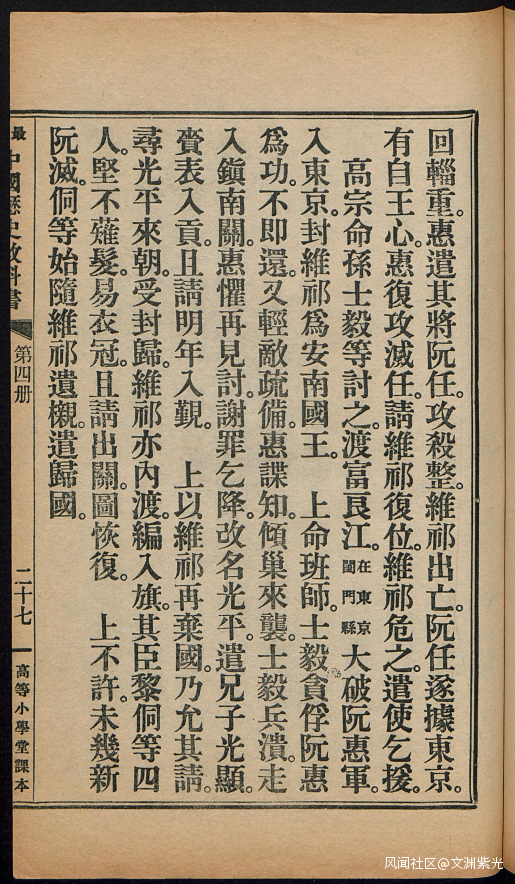 回輜重。惠遣其將阮任。攻殺整。維祁出亡。阮任遂據東京。
有自王心。惠復攻滅任。請維祁復位。維祁危之。遣使乞援。
高宗命孫士毅等討之。渡富良江。在東京閶門縣大破阮惠軍。
入東京。封維祁爲安南國王。　上命班師。士毅貪俘阮惠
爲功。不即還。又輕敵疏備。惠諜知。傾巢來襲。士毅兵潰。走
入鎮南關。惠懼再見討。謝罪乞降。改名光平。遣兄子光顯。
賫表入貢。且請明年入覲。　上以維祁再棄國。乃允其請。
尋光平來朝。受封歸。維祁亦內渡。編入旗。其臣黎侗等四
人。堅不薙髮。易衣冠。且請出關。圖恢復。　上不許。未幾新
阮滅。侗等始隨維祁遺櫬。遣歸國。
最中國歷史教科書
第四册
二十七
高等小學堂課本
风闻社区@文渊紫光